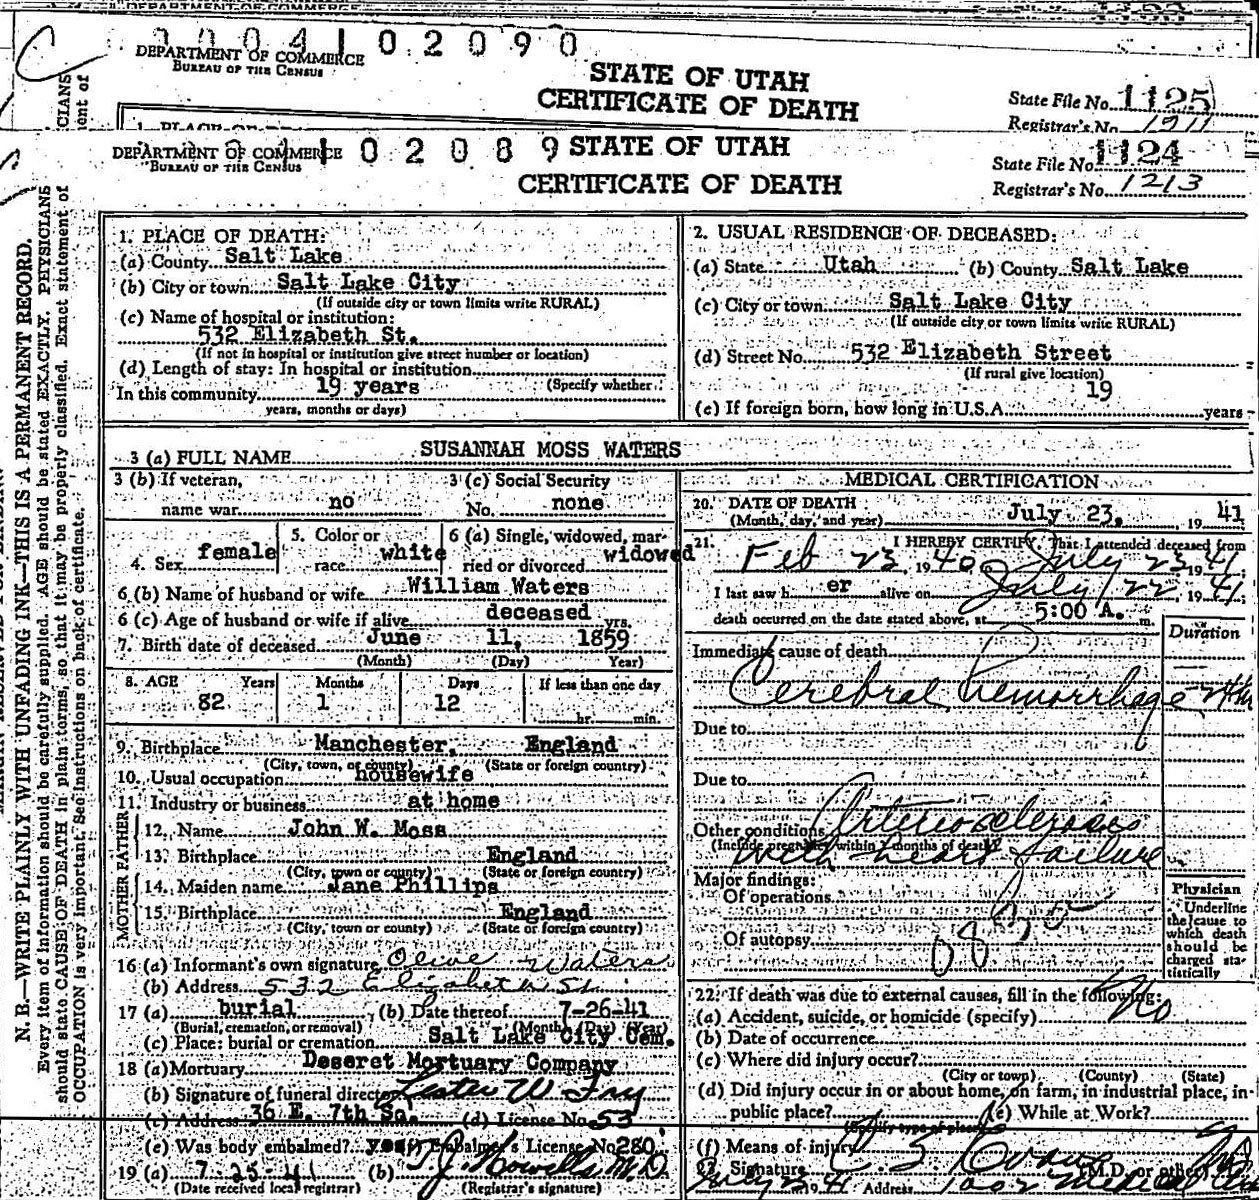 DEPARTMENT OF COMMERCE
0041 02090
DEPARTMENT OF COMMERCE
BUREAU OF THE CENSUS
STATE OF UTAH
CERTIFICATE OF DEATH
State File No. 1125
Registrar's No. 1211
1. PLACE OF
DEPARTMENT OF COMMERCE
BUREAU OF THE CENSUS
41 02089
STATE OF UTAH
CERTIFICATE OF DEATH
State File No. 1124
Registrar's No. 1213
N. B.—WRITE PLAINLY WITH UNFADING INK—THIS IS A PERMANENT RECORD.
Every item of information should be carefully supplied. AGE should be stated EXACTLY. PHYSICIANS
should state CAUSE OF DEATH in plain terms, so that it may be properly classified. Exact statement of
OCCUPATION is very important. See instructions on back of certificate.
1. PLACE OF DEATH:
(a) County Salt Lake
(b) City or town Salt Lake City
(If outside city or town limits write RURAL)
(c) Name of hospital or institution:
532 Elizabeth St.
(If not in hospital or institution give street number or location)
(d) Length of stay: In hospital or institution
In this community 19 years (Specify whether
years, months or days)
2. USUAL RESIDENCE OF DECEASED:
(a) State Utah (b) County Salt Lake
(c) City or town Salt Lake City
(If outside city or town limits write RURAL)
(d) Street No. 532 Elizabeth Street
(If rural give location)
19
(e) If foreign born, how long in U.S.A. years
3 (a) FULL NAME SUSANNAH MOSS WATERS
3 (b) If veteran, name war no
3 (c) Social Security No. none
4. Sex female
5. Color or race white
6 (a) Single, widowed, married or divorced widowed
6 (b) Name of husband or wife William Waters
6 (c) Age of husband or wife if alive deceased yrs.
7. Birth date of deceased June 11, 1859
(Month) (Day) Year)
8. AGE Years Months Days If less than one day
82 1 12 hr. min.
9. Birthplace Manchester, England
(City, town, or county) (State or foreign country)
10. Usual occupation housewife
11. Industry or business at home
FATHER
12. Name John W. Moss
13. Birthplace England
(City, town or county) (State or foreign country)
MOTHER
14. Maiden name Jane Phillips
15. Birthplace England
(City, town or county) (State or foreign country)
16 (a) Informant's own signature Olive Waters
(b) Address 532 Elizabeth St
17 (a) burial (b) Date thereof 7-26-41
(Burial, cremation, or removal) (Month) (Day) (Year)
(c) Place: burial or cremation Salt Lake City Cem.
18 (a) Mortuary Deseret Mortuary Company
(b) Signature of funeral director Lester W Fry
(c) Address 36 E. 7th So. (d) License No. 53
(e) Was body embalmed? yes Embalmer's License No. 280
19 (a) 7-25-41 (b) T. J. Howells M.D.
(Date received local registrar) (Registrar's signature)
MEDICAL CERTIFICATION
20. DATE OF DEATH
(Month, day, and year) July 23, 1941
21. I HEREBY CERTIFY, That I attended deceased from
Feb 23, 1940 July 23 1941
I last saw her alive on July 22, 1941
death occurred on the date stated above, at 5:00 A. m.
Duration
Immediate cause of death
Cerebral hemorrhage
Due to
Due to
Other conditions Arteriosclerosis
(Include pregnancy within 3 months of death)
with heart failure
Major findings:
Of operations
Of autopsy
Physician
Underline
the cause to
which death
should be
charged sta-
tistically
22. If death was due to external causes, fill in the following:
(a) Accident, suicide, or homicide (specify) No
(b) Date of occurrence
(c) Where did injury occur?
(City or town) (County) (State)
(d) Did injury occur in or about home, on farm, in industrial place, in
public place? (e) While at Work?
(Specify type of place)
(f) Means of injury
23. Signature (M.D. or other)
1941 Address